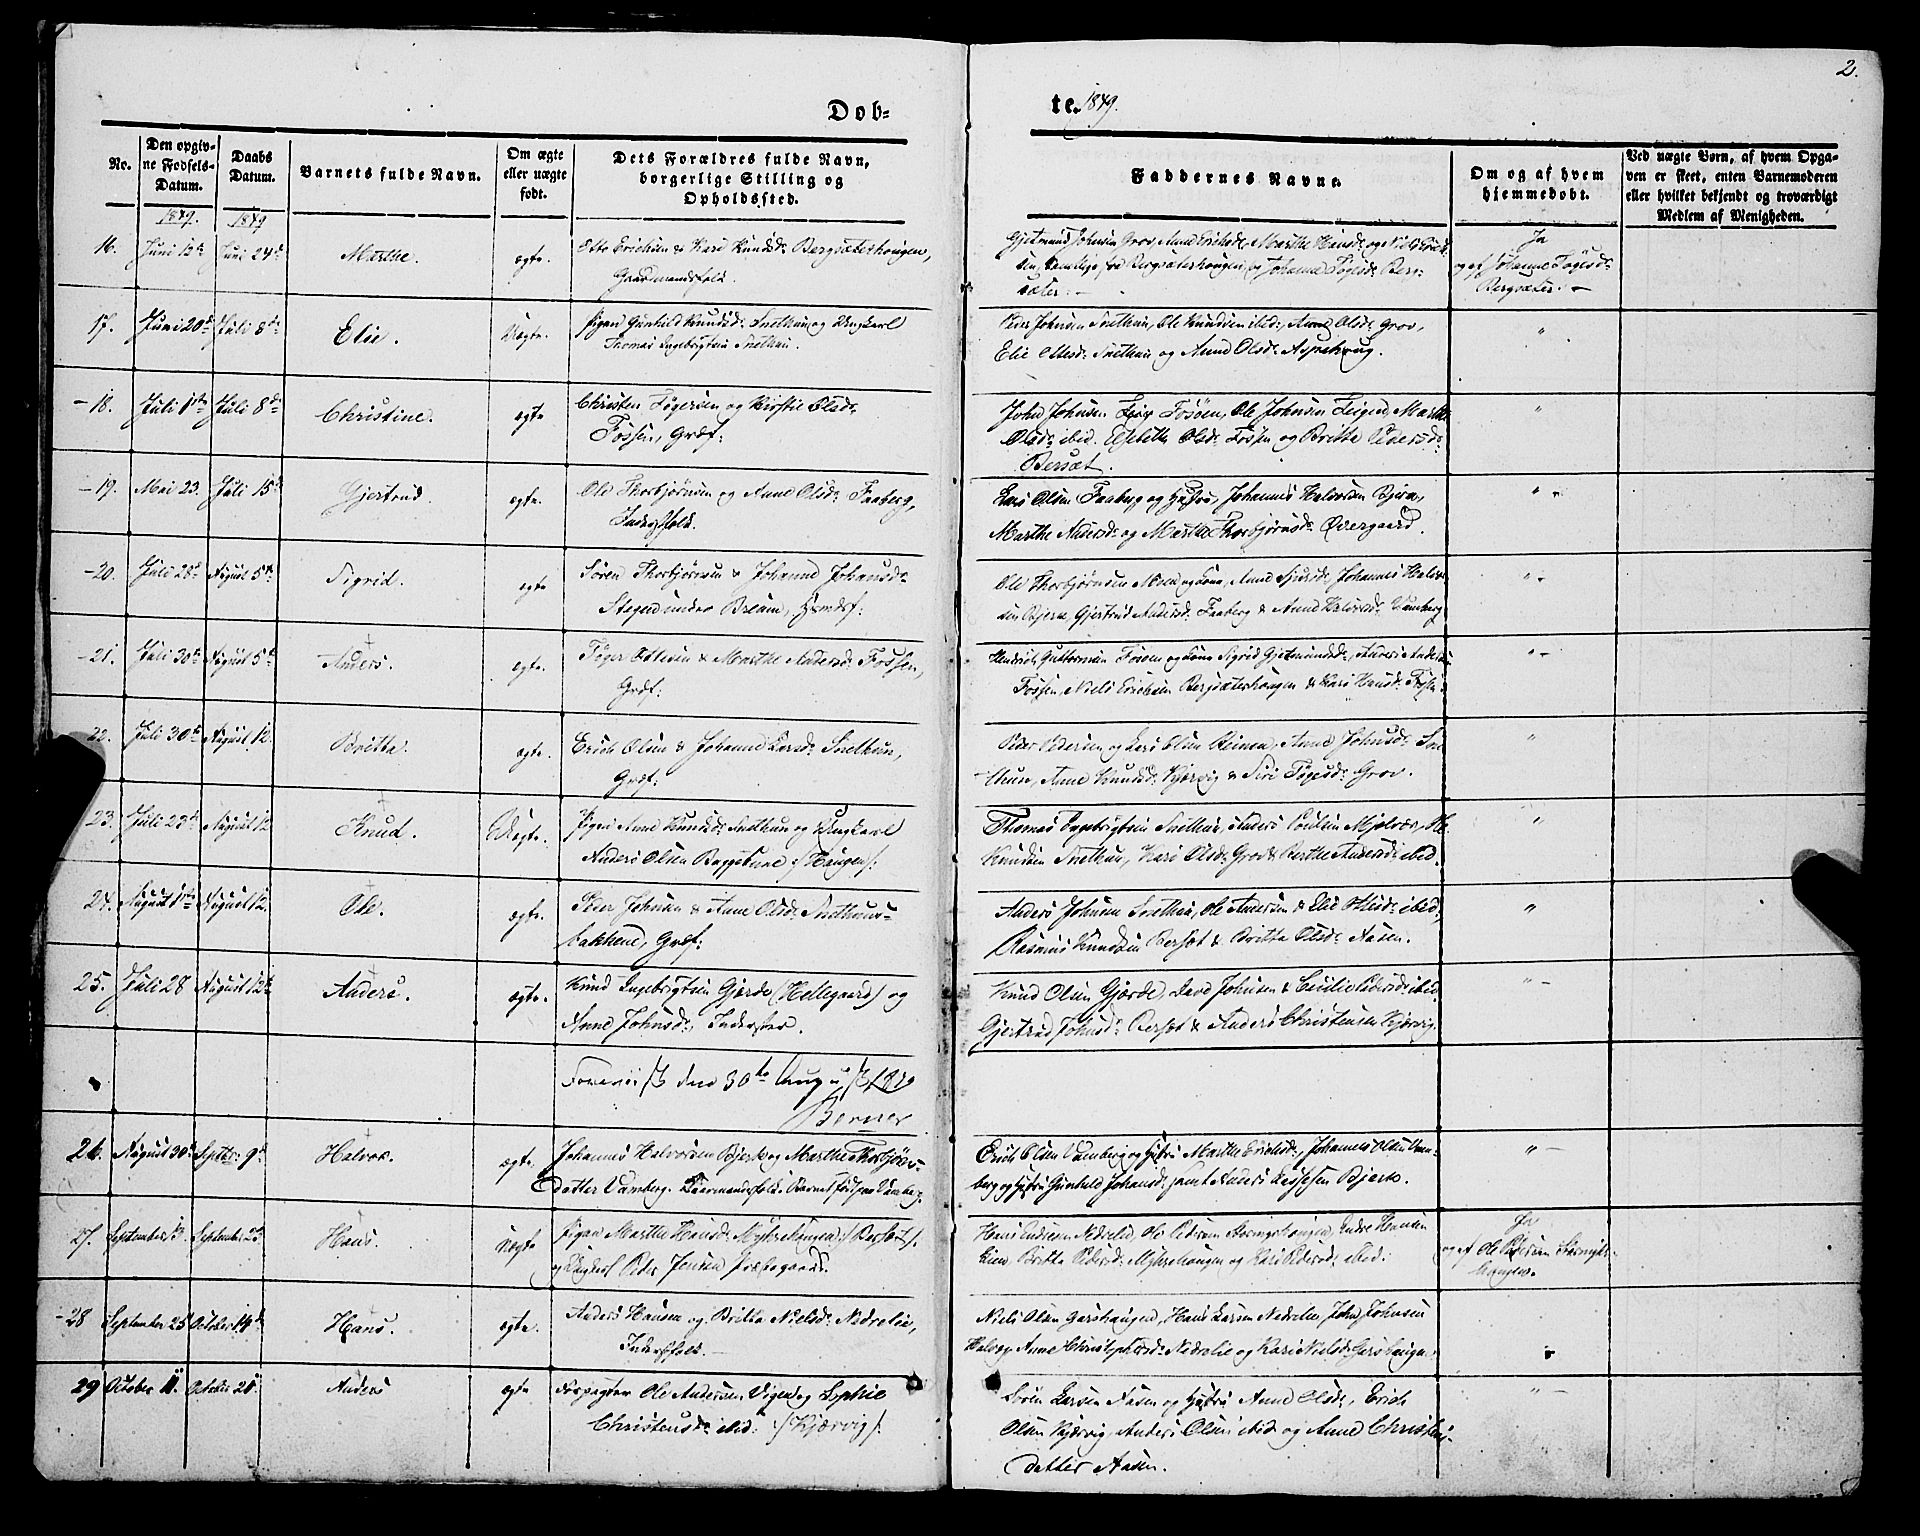 2.
Dob-
te. 1849.
No.
Den opgiv-
ne Fødsels-
Datum.
Daabs
Datum.
Barnets fulde Navn.
Om ægte
eller uægte
født.
Dets Forældres fulde Navn,
borgerlige Stilling og
Opholdssted.
Faddernes Navne.
Om og af hvem
hjemmedøbt.
Ved uægte Børn, af hvem Opga-
ven er skeet, enten Barnemoderen
eller hvilket bekjendt og troværdigt
Medlem af Menigheden.
1849. 1849
16. Juni 12te Juni 24de Marthe. ægte. Otto Erichsen & Kari Knudsd: Bergsæterhougen,
Gaardmandsfolk.
Gjetmund Johnsen Grov, Anne Erichsd:, Marthe Hansd: og Niels Erich
sen, samtlige fra Bergsæterhougen, og Johanne Tøgersd: Berg-
sæter. –
Ja
og af Johanne Tøgersd:
Bergsæter. –
17. Juni 20de Juli 8de Elie. Uægte. Pigen Gunhild Knudsd: Snethun og Ungkarl
Thomas Ingebrigtsen Snethun.
Peder Johnsen Snethun, Ole Knudsen ibid:, Anne Olsd: Grov,
Elie Ottesd: Snethun og Anne Olsd: Aspehoug.
"
18. Juli 1ste Juli 8de Christine. ægte Christen Tøgersen og Kirstie Olsd:
Fossen, Grdf:
John Johnsen Fosøen, Ole Johnsen Marthe
Olsd: ibid. Elsebeth Olsd: Fossen og Britta Pedersd:
Bersæt.
"
19. Mai 23. Juli 15de Gjertrud. ægte. Ole Thorbjørnsen og Anne Olsd: Faaberg,
Inderstfolk.
Lars Olsen Faaberg og Hustru, Johannes Halvorsen Bjerk,
Marthe Andersd: og Marthe Thorbjørnsd: Øvergaard.
" -
20. Juli 28de August 5te Sigrid. ægte Søren Thorbjørnsen & Johanne Johansd:
Stegen under Breum, Huusmdsf:
Ole Thorbjørnsen Moen og Kone, Anne Sjursd:, Johannes Halvor
sen Bjerk, Gjertrud Andersd: Faaberg & Anne Halvorsd: Vamberg
" -
21. Juli 30te August 5te Anders. ægte. Tøger Ottesen & Marthe Andersd: Fossen,
Grdf:
Hendrich Guttormsen Fosøen og Kone Sigrid Gjetmundsd:, Anders Anders
Fossen, Niels Erichsen Bergsæterhougen & Kari Hansd: Fossen.
" -
22. Juli 30te August 12. Britta. ægte. Erich Olsen & Johanne Larsd: Snethun,
Grdf:
Peder Pedersen og Lars Olsen Reinen, Anne Johnsd: Sne
thun, Anne Knudsd: Kjørvig & Siri Tøgersd: Grov.
"
23. Juli 23de August 12 Knud. Uægte. Pigen Anne Knudsd: Snethun og Ungkarl
Anders Olsen Byggetune /:Hougen:/.
Thomas Ingebrigtsen Snethun, Anders Poulsen Mjelvær, Ole
Knudsen Snethun, Kari Olsd: Grov & Berthe Andersd: ibid.
"
24. August 1ste August 12. Ole. ægte. Peder Johnsen & Anne Olsd: Snethuns-
bakkene, Grdf:
Anders Johnsen Snethun, Ole Andersen & Elie Ottesd: ibid,
Rasmus Knudsen Bersæt & Britta Olsd: Aasen.
"
25. Juli 28 August 12te Anders. ægte. Knud Ingebrigtsen Gjerde (Hellegaard) og
Anne Johnsd:, Inderster.
Knud Olsen Gjerde, Lars Johnsen & Cecilie Pedersd: ibid.
Gjertrud Johnsd: Bersæt & Anders Christensen Kjørvig.
" -
Foreviist den 30te August 1849
Berner
26. August 30te Septbr: 9de Halvor. ægte. Johannes Halvorsen Bjerk og Marthe Thorbjørns-
datter Vamberg. Gaarmandsfolk. Barnet født paa Vamberg.
Erich Olsen Vamberg og Hstru Marthe Erichsd:, Johannes Olsen Vam-
berg og Hstru Gunhild Johansd: samt Anders Lassesen Bjerk.
" -
27. September 13. September 23 Hans. Uægte Pigen Marthe Hansd: Myhrehaugen /:Bersæt:/.
og Ungkarl Peder Jensen Præstegaard.
Hans Endresen Nedrelid, Ole Pedersen Støvringshougen, Endre Hansen
Lien Britta Pedersd: Myhrehougen og Kari Pedersd: ibid:
Ja
og af Ole Pedersen Støvrings-
hougen.
28 September 25 October 14de Hans. ægte. Anders Hansen og Britta Nielsd: Nedrelie,
Inderstfolk. –
Niels Olsen Gershaugen, Hans Larsen Nedrelie, John Johnsen
Halvøy Anne Christophersd: Nedrelie og Kari Nielsd: Gershaugen.
"
29 October 11. October 28 Anders ægte Forpagter Ole Andersen Vigen og Sophie
Christensd: ibid: /:Kjærvig:/.
Søren Larsen Aasen og Hstru Anne Olsd:, Erich
Olsen Kjørvig, Anders Olsen ibid og Anne Christens
datter Aasen.
" -